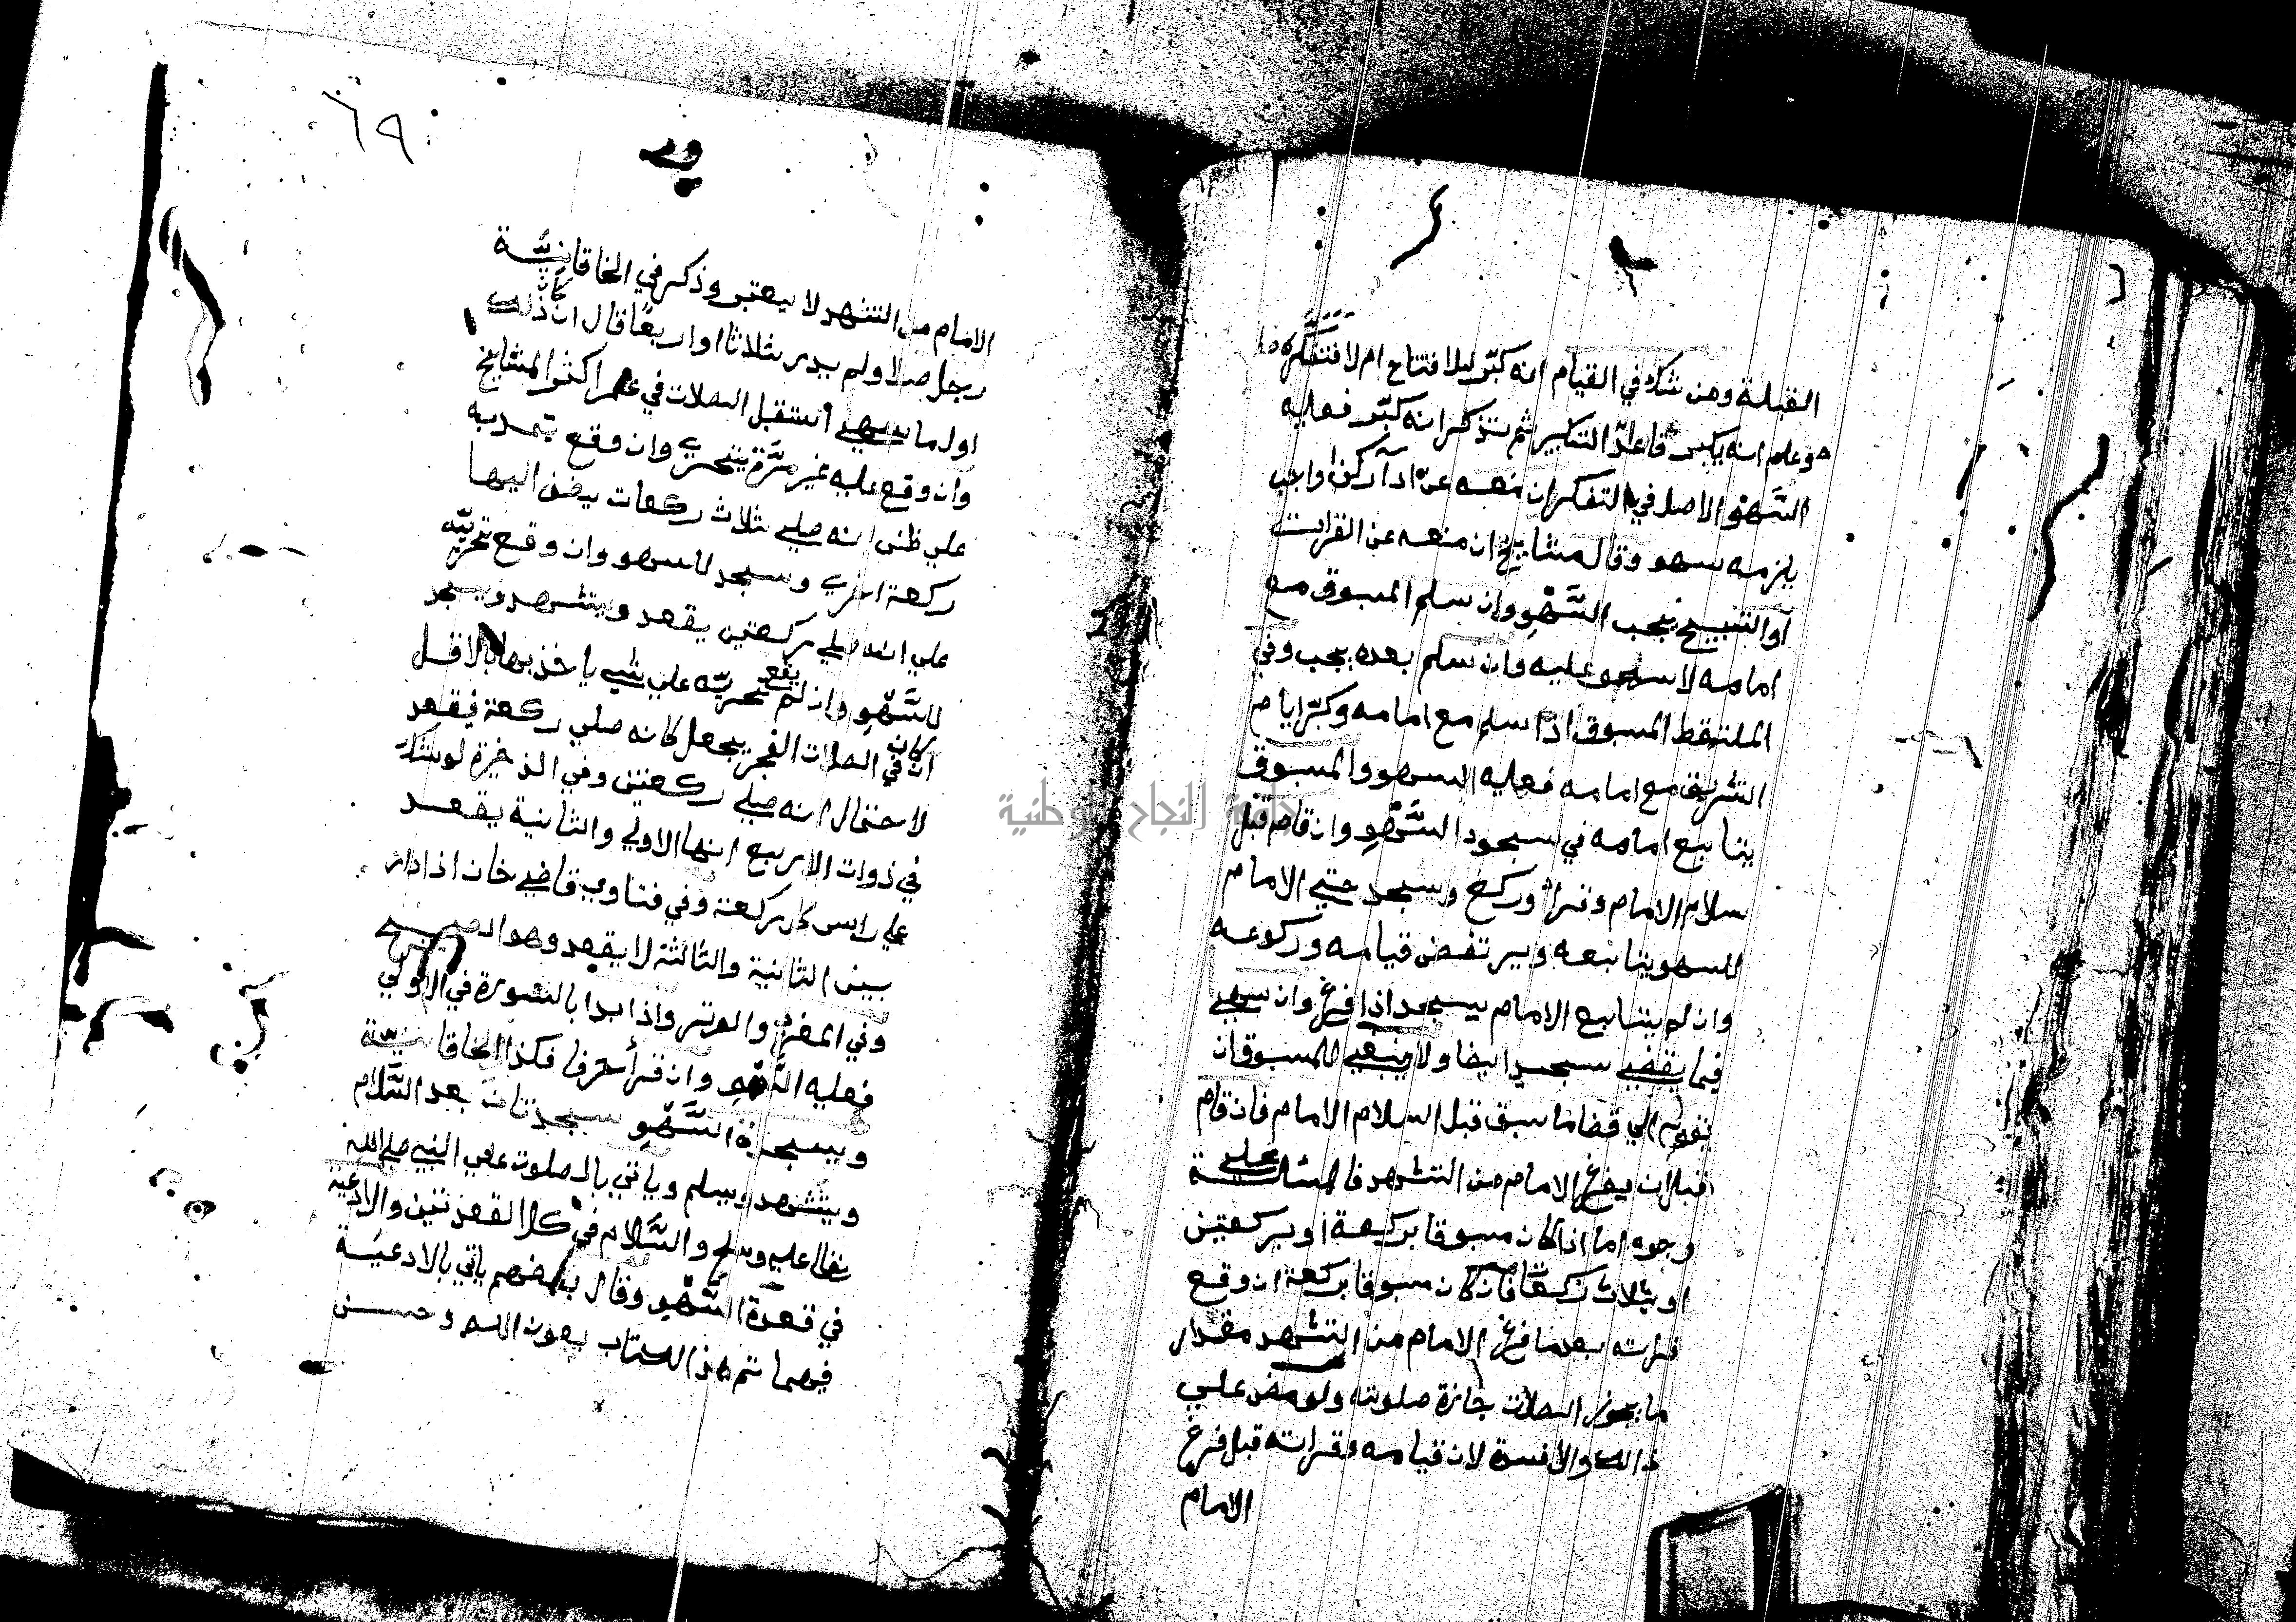 القبلة ومن شك في القيام انه كبّر للافتتاح ام لا فتفكر
وعلم انه يكبر فاعاد التكبير ثم تذكر انه كبّر فعليه
السَّهْو الاصل في التفكر ان منعه عن ادآ ركن او اجب
يلزمه سهو وقال مشايخ ان منعه عن القرات
او التسبيح يجب السَّهْوِ وان سلم المسبوق مع
امامه لا سهو عليه وان سلم بعده يجب وفي
الملتقط المسبوق اذا سلم مع امامه وكبّر ايام
التشريق مع امامه فعليه السهو والمسبوق
يتابع امامه في سجود السَّهْوِ وان قام قبل
سلام الامام وقرأ وركع وسجد حتي الامام
للسهو يتابعه ويرتفض قيامه وركوعه
وان لم يتابع الامام يسجد اذا فرغ وان سهي
فيما يقضي سجد ايضا ولا ينبغي للمسبوق ان
يقوم الي قضا ما سبق قبل السلام الامام فان قام
قبل ان يفرغ الامام من التشهد فالمسالة علي
وجوه اما اذا كان مسبوقا بركعة او بركعتين
او بثلاث ركعات فان كان مسبوقا بركعة ان وقع
قراته بعد ما فرغ الامام من التشهد مقدار
ما يجوز الصلات جازة صلوته ولو مضى علي
ذالك والا فسدة لان قيامه وقراته قبل فرغ
الامام
٦٩
الامام من التشهد لا يعتبر وذكر في الخاقانيّة
رجل صلا ولم يدر ثلاثا او اربعًا قال ان كان ذلك
اول ما سهي استقبل الصلات في اكثر المشايخ
وان وقع عليه غير مرّة يتحري وان وقع تحريه
علي ظنى انه صلي ثلاث ركعات يضف اليها
ركعة اخري وسجد للسهو وان وقع تحريّه
علي انه صلي ركعتين يقعد ويتشهد ويسجد
للسَّهْوِ وان لم يقع تحريّه علي شي ياخذ بالاقل
ان كان في الصلات الفجر يجعل كانه صلي ركعة فيقعد
لاحتمال انه صلي ركعتين وفي الذخيرة لو شك
في ذوات الاربع انها الاولي والثانية يقعد
علي راس كل ركعة وفي فتاوي قاضي خان اذا دار
بين الثانية والثالثة لا يقعد وهو الصحيح
وفي المغرب والوتر واذا بدا بالسورة في الاولي
فعليه السَّهْوِ وان قرأ حرفا فكذا الخاقانيّة
ويسجدة السَّهْوِ سجدتان بعد السَّلام
ويتشهد ويسلم وياتي بالصلوت علي النبي صلي الله
تعالى عليه وسلم والسَّلام في كلا القعدتين والادعية
في قعدة السَّهْوِ وقال بعضهم ياتي بالادعيَة
فيهما تم هذا الكتاب بعون الله وحسن
جامعة النجاح الوطنية